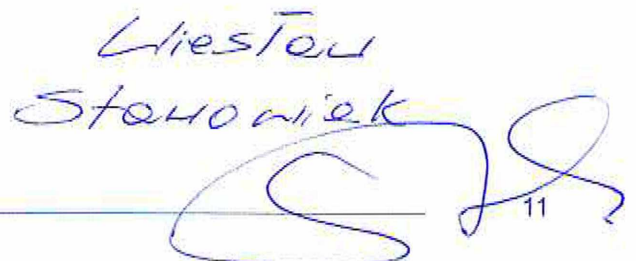 Wiesław
Stanowiek
11